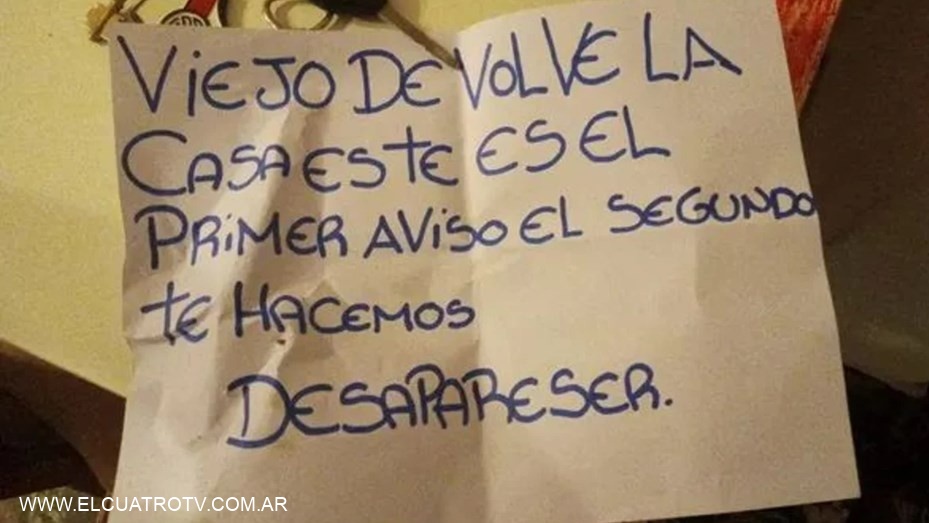 VIEJO DE VOLVE LA
CASA ESTE ES EL
PRIMER AVISO EL SEGUNDO
TE HACEMOS
DESAPARESER.
WWW.ELCUATROTV.COM.AR